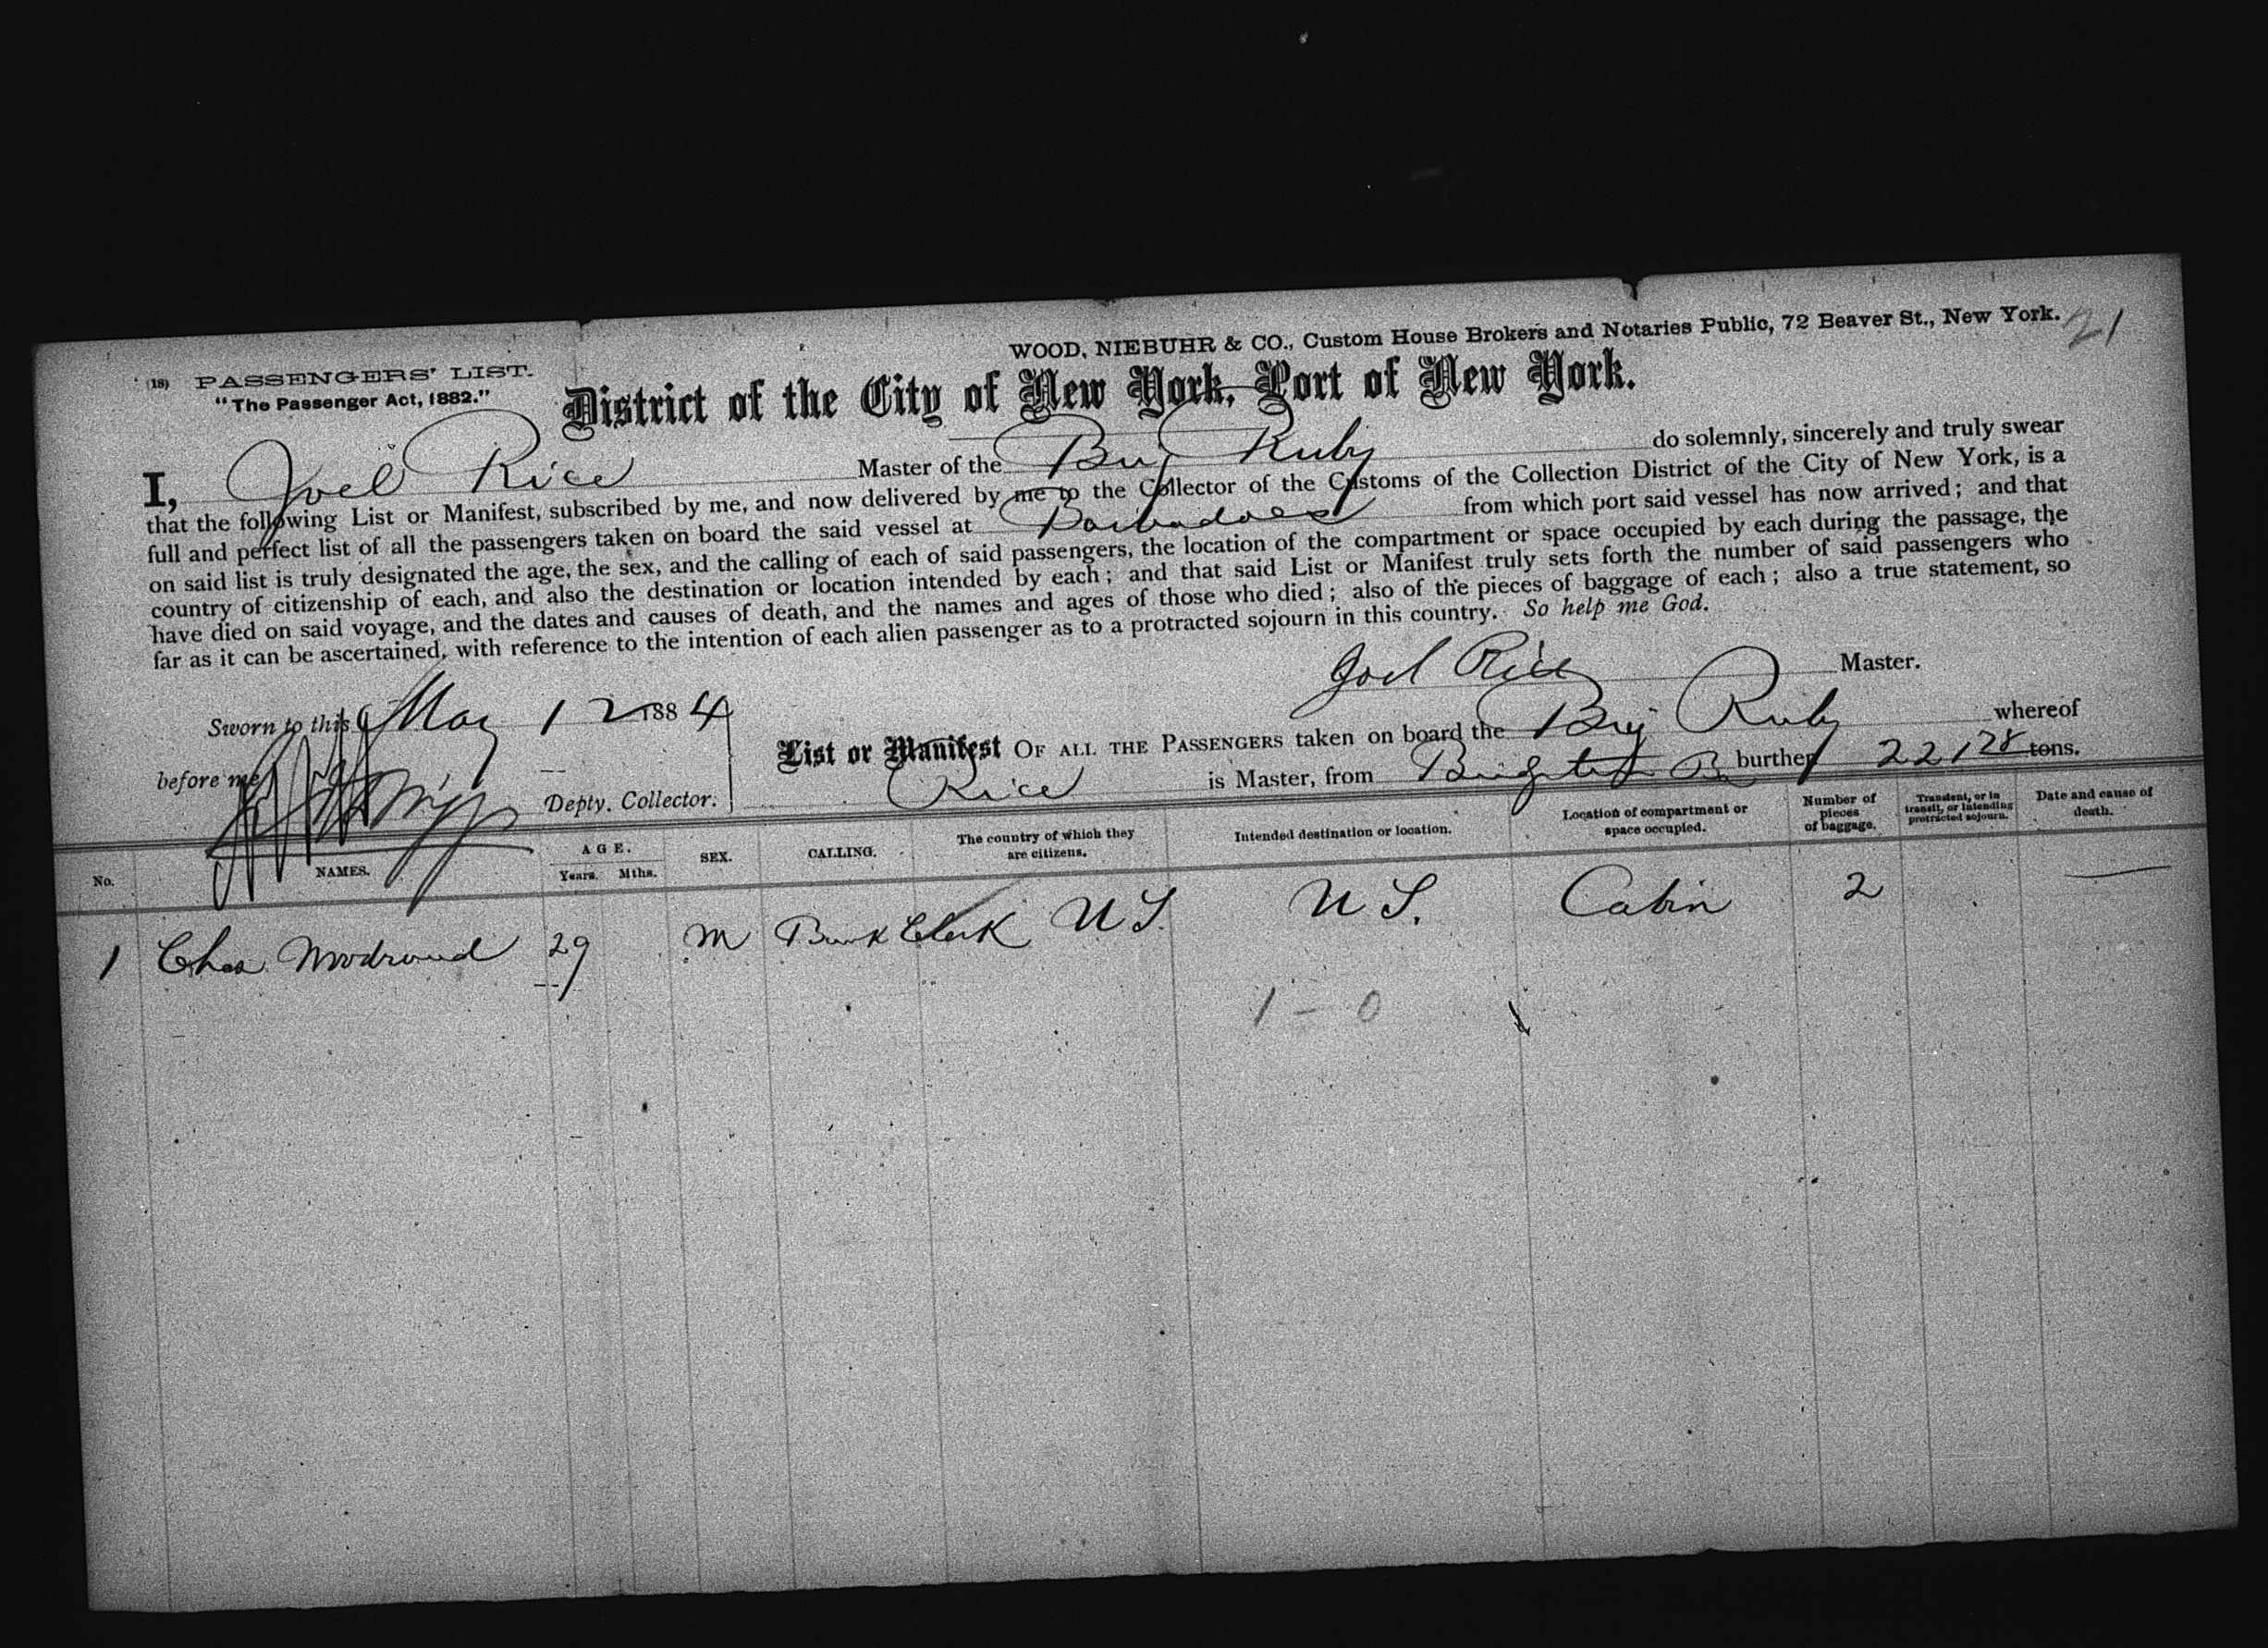 WOOD, NIEBUHR & CO., Custom House Brokers and Notaries Public, 72 Beaver St., New York.
21
(18) PASSENGERS' LIST.
"The Passenger Act, 1882."
District of the City of New York, Port of New York.
I, Joel Rice Master of the Brig Ruby do solemnly, sincerely and truly swear
that the following List or Manifest, subscribed by me, and now delivered by me to the Collector of the Customs of the Collection District of the City of New York, is a
full and perfect list of all the passengers taken on board the said vessel at Barbadoes from which port said vessel has now arrived; and that
on said list is truly designated the age, the sex, and the calling of each of said passengers, the location of the compartment or space occupied by each during the passage, the
country of citizenship of each, and also the destination or location intended by each; and that said List or Manifest truly sets forth the number of said passengers who
have died on said voyage, and the dates and causes of death, and the names and ages of those who died; also of the pieces of baggage of each; also a true statement, so
far as it can be ascertained, with reference to the intention of each alien passenger as to a protracted sojourn in this country. So help me God.
Joel Rice Master.
Sworn to this May 12 1884
before me
Depty. Collector.
List or Manifest OF ALL THE PASSENGERS taken on board the Brig Ruby whereof
Rice is Master, from burthen 221 28 tons.
No. NAMES. AGE. Years. Mths. SEX. CALLING. The country of which they are citizens. Intended destination or location. Location of compartment or space occupied. Number of pieces of baggage. Transient, or in transit, or intending protracted sojourn. Date and cause of death.
1 Chas 29 M Bank Clerk U S. U S. Cabin 2 —
1 - 0